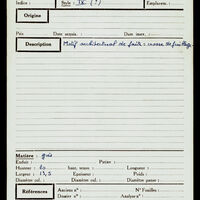 Indice : Style : IX (?) Emplacem. :
Origine
Prix Date acquis. : Date inscr. :
Description Motif architectural de faîte : crosse de feuillage.
Matière : grès
Enduit : Patine :
Hauteur : 20 haut. tenon : Longueur :
Largeur : 13,5 Epaisseur : Poids :
Diamètre col. : Diamètre panse :
Références Ancien n° : N° Fouilles :
Dossier n° : Analyse n° :